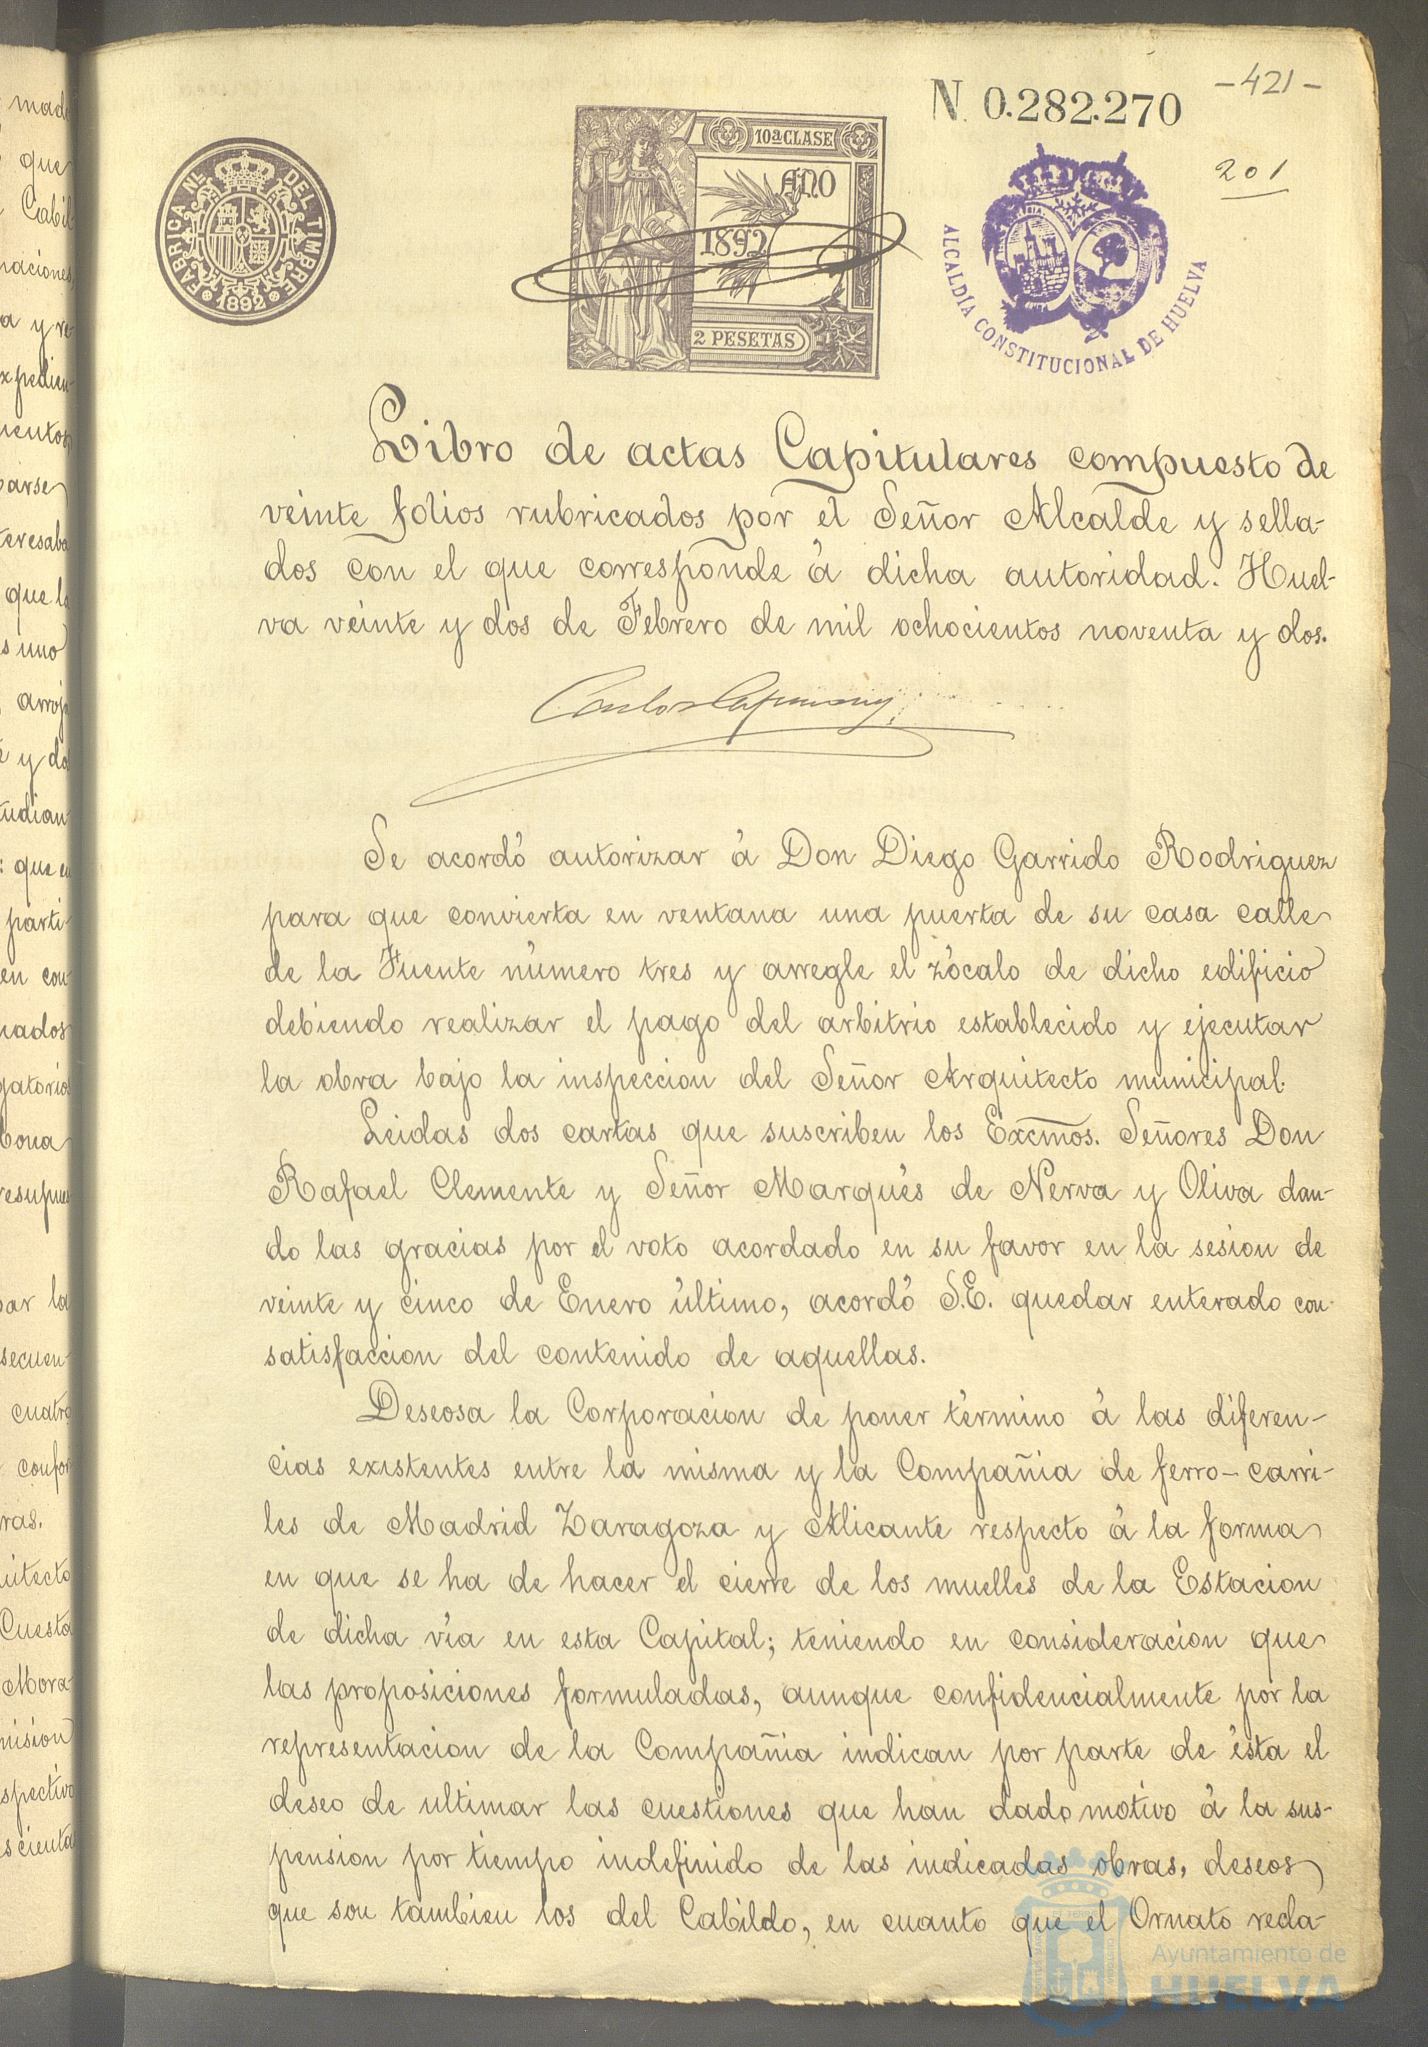 -421-
N. 0.282.270
201
FÁBRICA NL. DEL TIMBRE
1892
10ª CLASE
AÑO
1892
2 PESETAS
ALCALDÍA CONSTITUCIONAL DE HUELVA
Libro de actas Capitulares compuesto de
veinte folios rubricados por el Señor Alcalde y sella-
dos con el que corresponde á dicha autoridad. Huel-
va veinte y dos de Febrero de mil ochocientos noventa y dos.
Se acordó autorizar á Don Diego Garrido Rodriguez
para que convierta en ventana una puerta de su casa calle
de la Fuente número tres y arregle el zócalo de dicho edificio
debiendo realizar el pago del arbitrio establecido y ejecutar
la obra bajo la inspeccion del Señor Arquitecto municipal.
Leidas dos cartas que suscriben los Excmos. Señores Don
Rafael Clemente y Señor Marqués de Nerva y Oliva dan-
do las gracias por el voto acordado en su favor en la sesion de
veinte y cinco de Enero último, acordó S.E. quedar enterado con
satisfaccion del contenido de aquellas.
Deseosa la Corporacion de poner término á las diferen-
cias existentes entre la misma y la Compañia de ferro-carri-
les de Madrid Zaragoza y Alicante respecto á la forma
en que se ha de hacer el cierre de los muelles de la Estacion
de dicha vía en esta Capital; teniendo en consideracion que
las proposiciones formuladas, aunque confidencialmente por la
representacion de la Compañia indican por parte de ésta el
deseo de ultimar las cuestiones que han dado motivo á la sus-
pension por tiempo indefinido de las indicadas obras, deseos
que son tambien los del Cabildo, en cuanto que el Ornato recla-
Ayuntamiento de
HUELVA